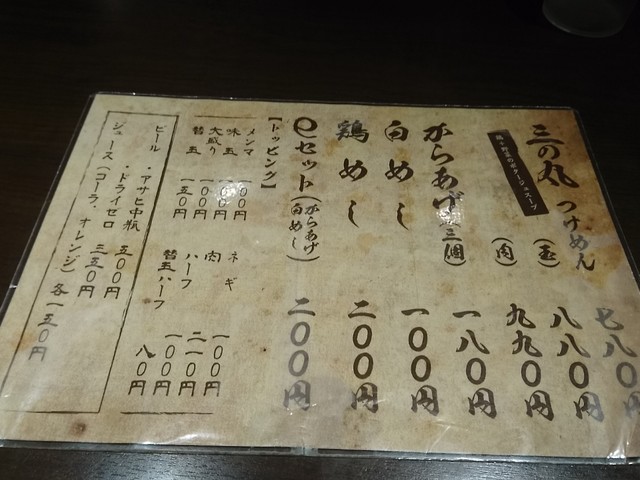 三の丸 つけめん 七八〇
鶏と野菜のポタージュスープ
(玉) 八八〇円
(肉) 九九〇円
からあげ(三個) 一八〇円
白めし 一〇〇円
鶏めし 二〇〇円
eセット(からあげ 白めし) 二〇〇円
【トッピング】
メンマ 一〇〇円
味玉 一〇〇円
大盛り 一〇〇円
替玉 一五〇円
ネギ 一〇〇円
肉 二一〇円
ハーフ 一〇〇円
替玉ハーフ 八〇円
ビール・アサヒ中瓶 五〇〇円
・ドライゼロ 三五〇円
ジュース(コーラ、オレンジ) 各一五〇円